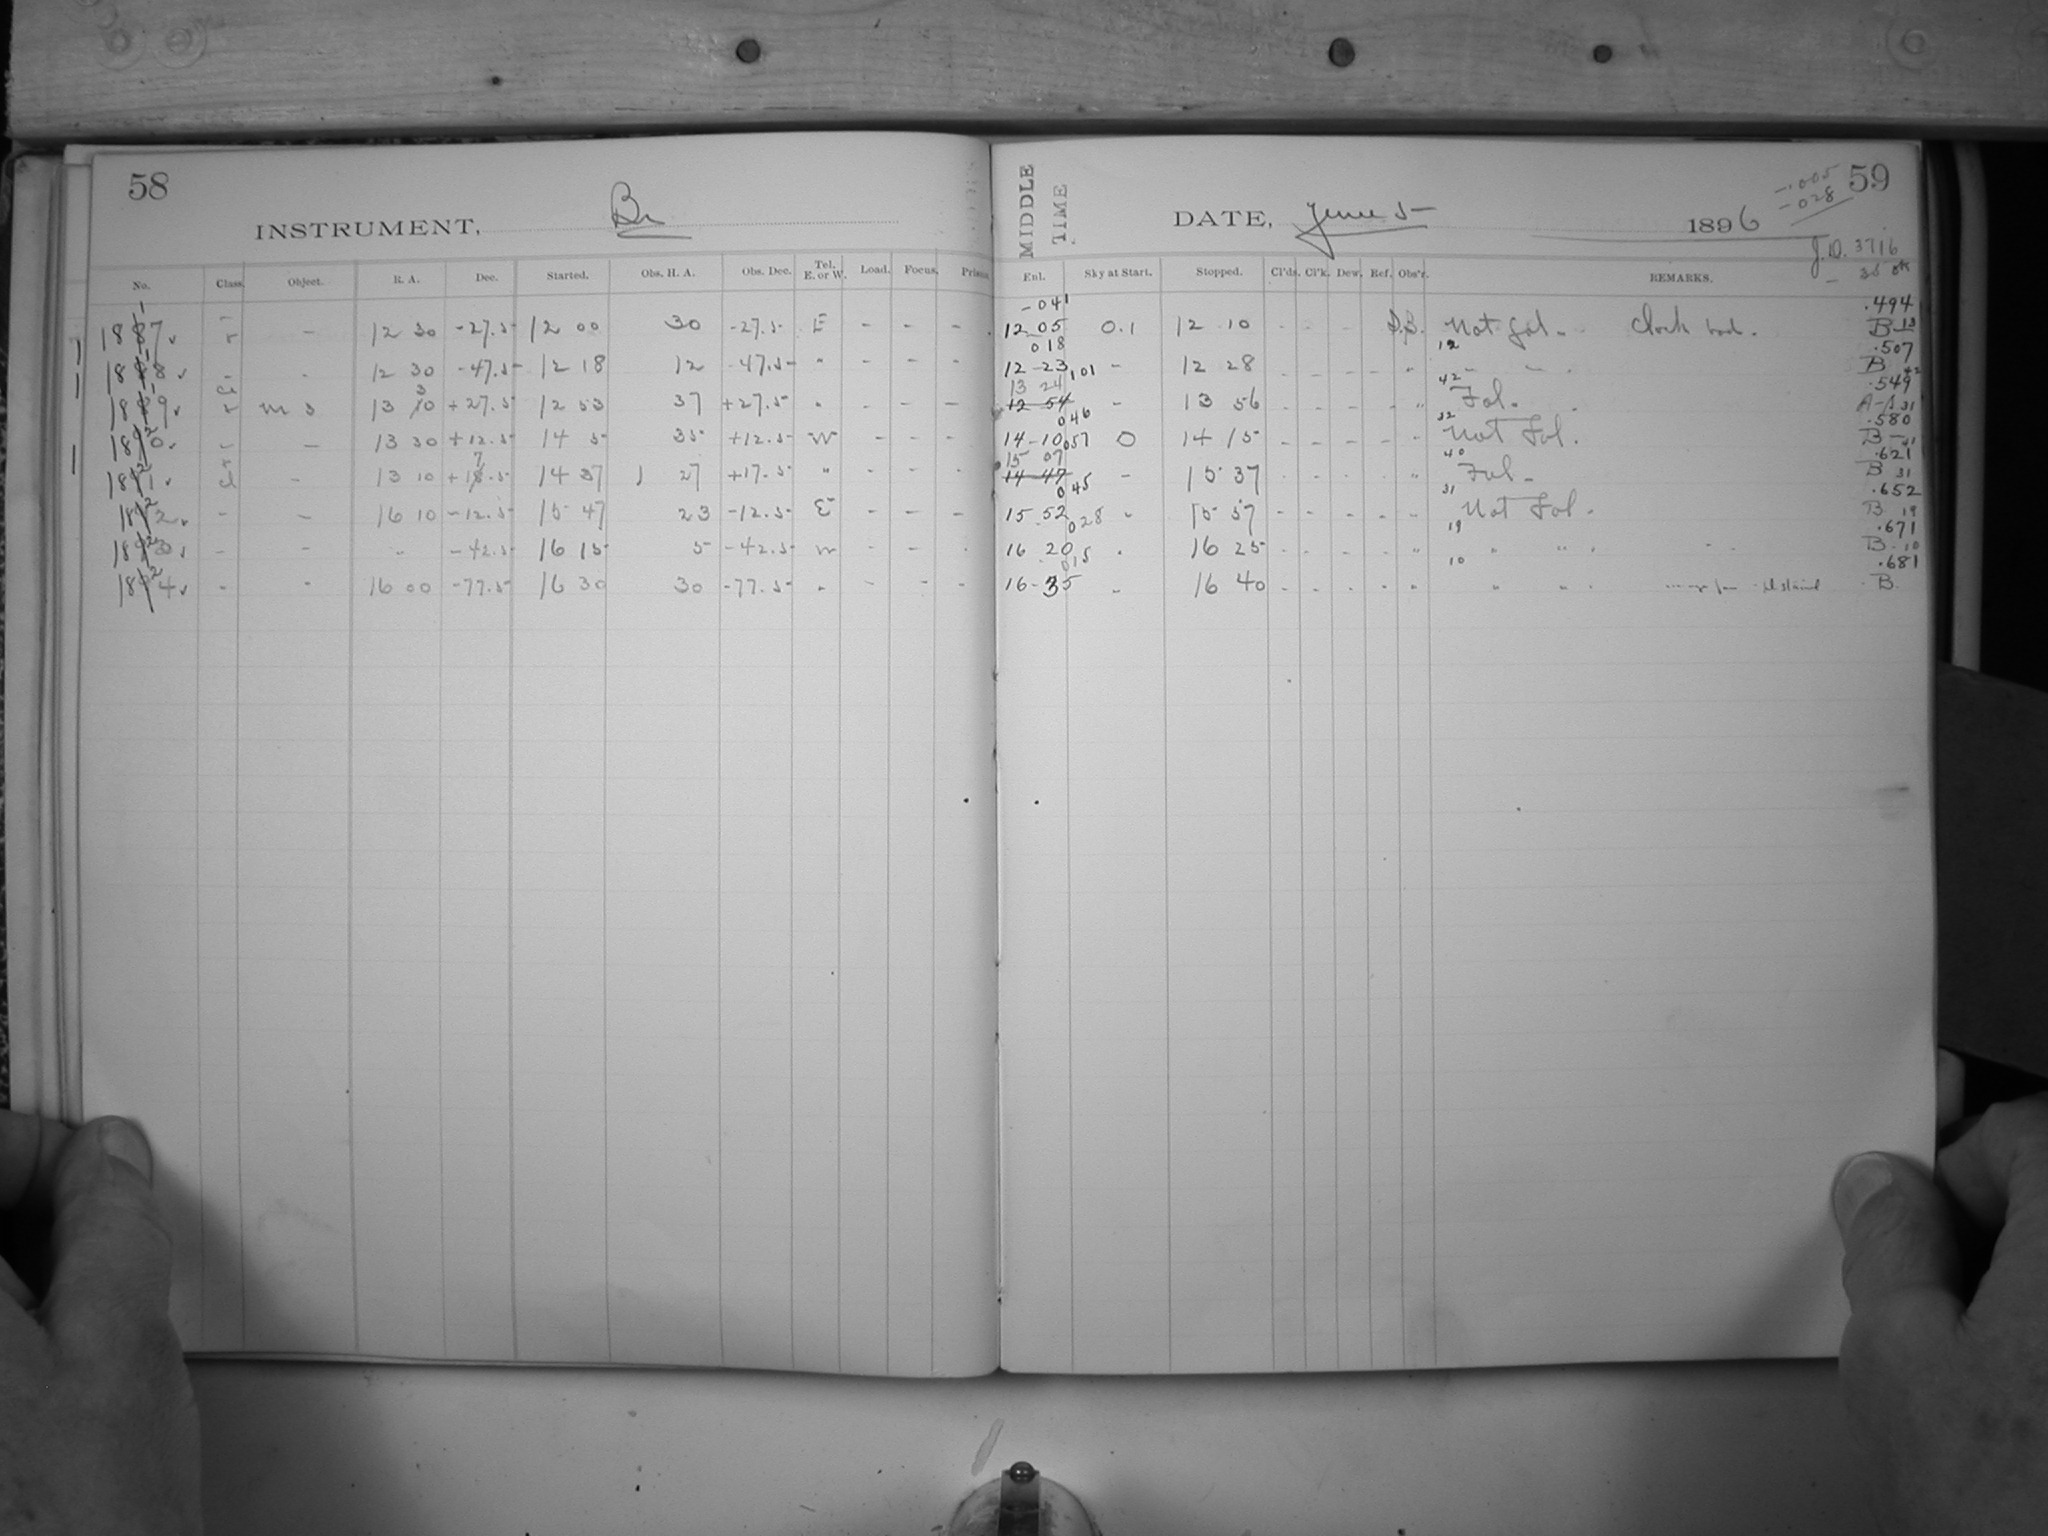 58
INSTRUMENT, Br
No. Class. Object. R. A. Dec. Started. Obs. H. A. Obs. Dec. Tel. E. or W. Load. Focus. Prisms
12 30 -27.5 12 00 30 -27.5 E - - -
12 30 -47.5 12 18 12 -47.5 " - - -
m s 13 30 +27.5 12 53 37 +27.5 " - - -
13 30 +12.5 14 5 35 +12.5 W - - -
13 10 +17.5 14 37 1 27 +17.5 " - - -
16 10 -12.5 15 47 23 -12.5 E - - -
- -42.5 16 15 5 -42.5 W - - -
16 00 -77.5 16 30 30 -77.5 " - - -
MIDDLE TIME
59
-.005
-028
DATE, June 5 1896
J.D. 3716
Enl. Sky at Start. Stopped. Cl'ds. Cl'k. Dew. Ref. Obs'r. REMARKS.
-041 .494
12 05 0.1 12 10 - - - Not fol. Clock bad. B 13
018 12 .507
12 23 101 - 12 28 - - - - " - - B 42
13 24 42 .549
12 54 - 13 56 - - - - " Fol. 31
046 32 .580
14-10 057 0 14 15 - - - - " Not Fol. B - 41
15 07 40 .621
14 47 - 15 37 - - - - " Fol. B 31
045 31 .652
15 52 " 15 57 - - - - " Not Fol. B 19
028 19 .671
16 20 " 16 25 - - - - " " " B - 10
015 10 .681
16-35 " 16 40 - - - - " " " B